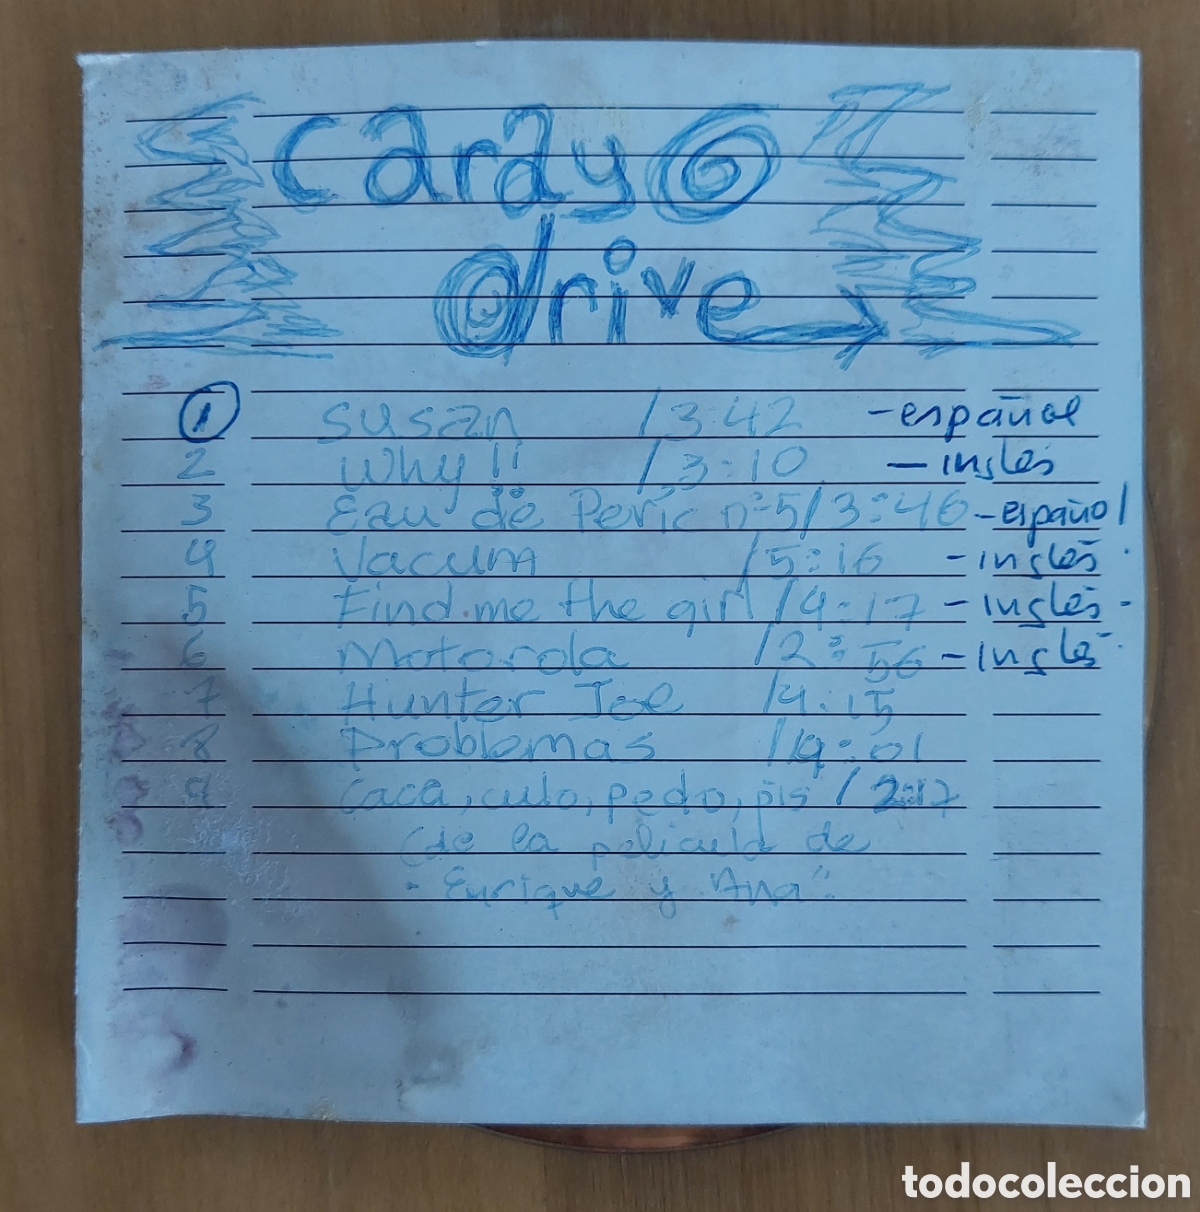 carayo
drive
1 Susan / 3:42 - español
2 Why!! / 3:10 - inglés
3 Eau de Peric nº5 / 3:46 - español
4 Vacum / 5:16 - inglés
5 Find me the girl / 4:17 - inglés -
6 Motorola / 2:56 - inglés
7 Hunter Joe / 4:15
8 Problemas / 4:01
9 Caca, culo, pedo, pis / 2:17
(de la pelicula de
"Enrique y Ana"
todocoleccion